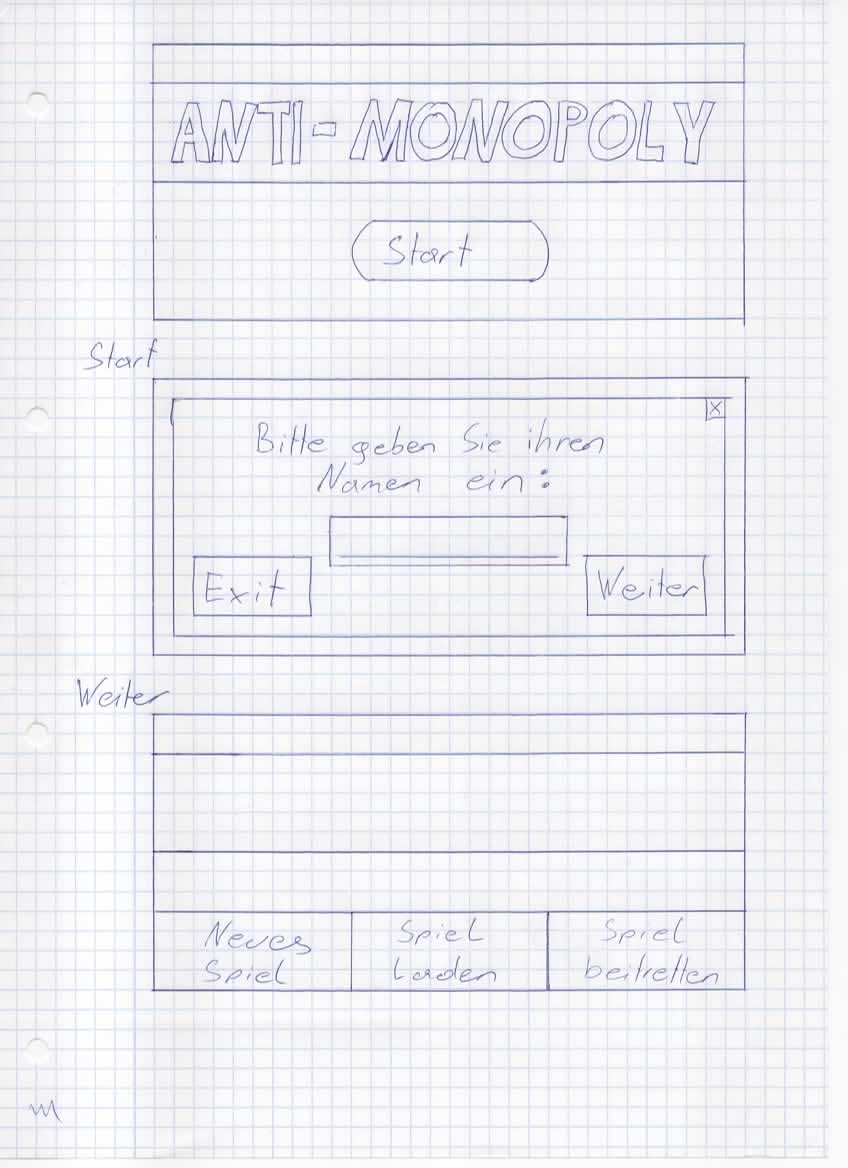 ANTI-MONOPOLY
Start
Start
X
Bitte geben Sie ihren
Namen ein:
Exit
Weiter
Weiter
Neues
Spiel
Spiel
Laden
Spiel
beitretten